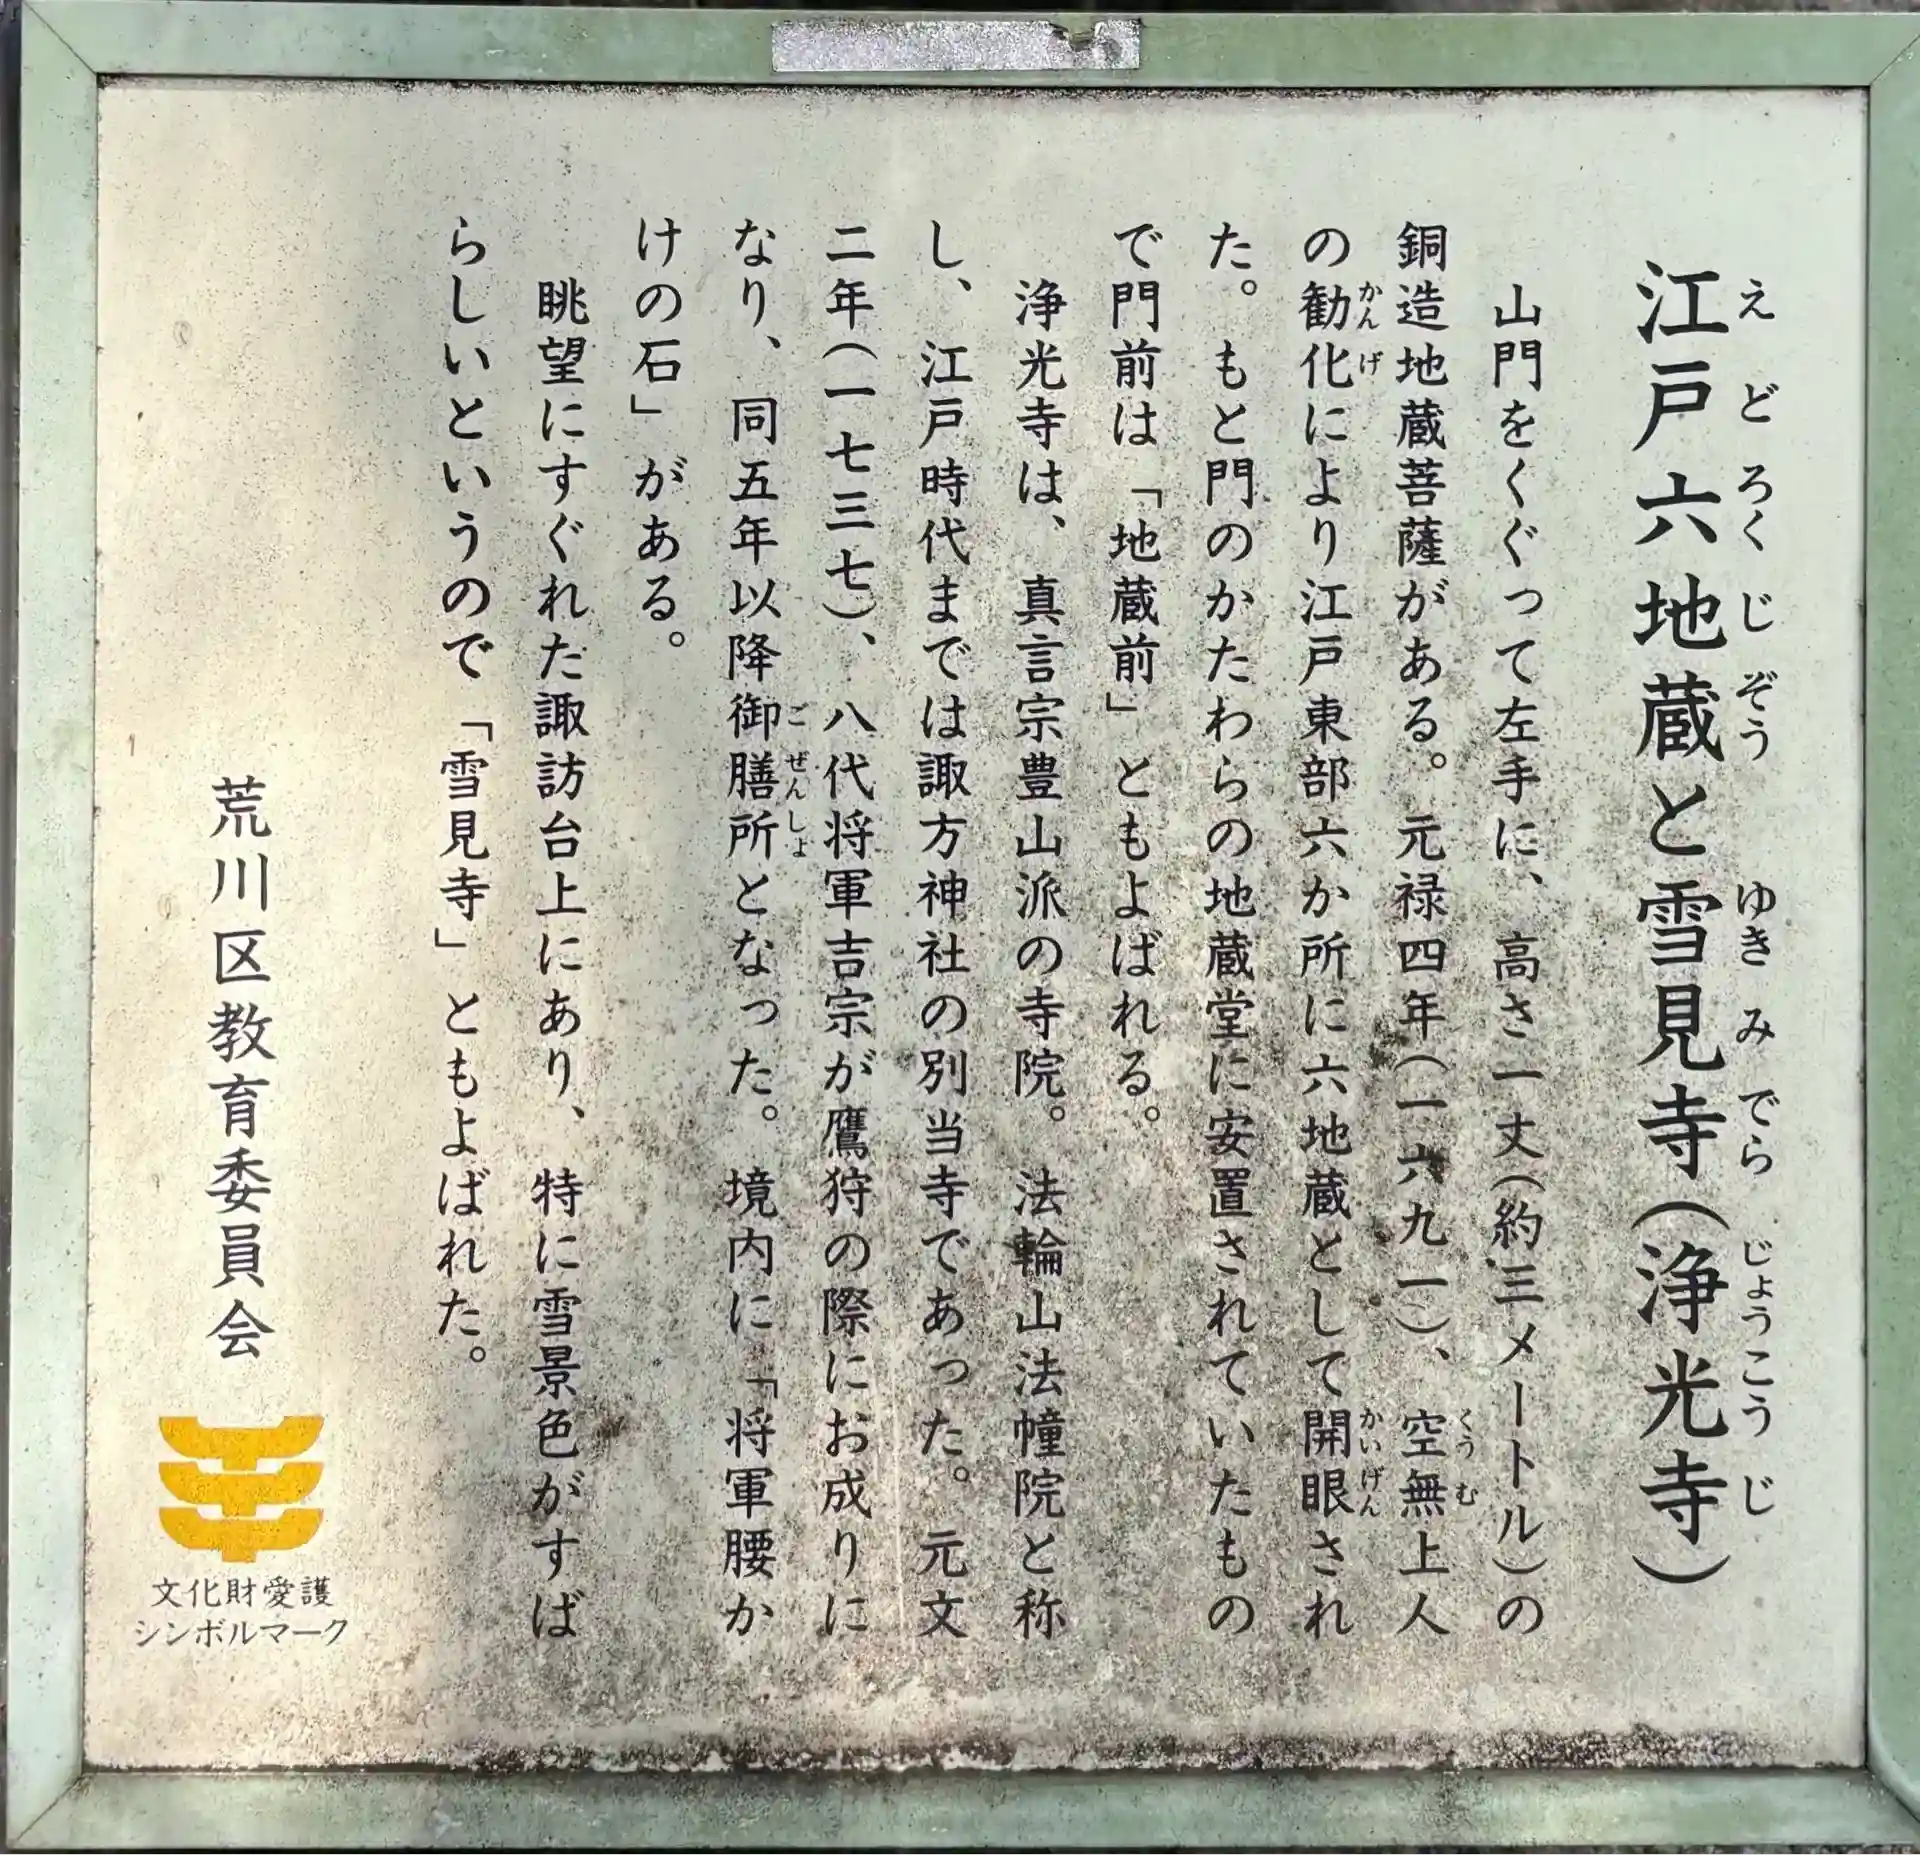 江戸六地蔵と雪見寺(浄光寺)
えどろくじぞう ゆきみでら じょうこうじ
山門をくぐって左手に、高さ一丈(約三メートル)の
銅造地蔵菩薩がある。元禄四年(一六九一)、空無上人
くうむ
の勧化により江戸東部六か所に六地蔵として開眼され
かんげ かいげん
た。もと門のかたわらの地蔵堂に安置されていたもの
で門前は「地蔵前」ともよばれる。
浄光寺は、真言宗豊山派の寺院。法輪山法幢院と称
し、江戸時代までは諏方神社の別当寺であった。元文
二年(一七三七)、八代将軍吉宗が鷹狩の際にお成りに
なり、同五年以降御膳所となった。境内に「将軍腰か
ごぜんしょ
けの石」がある。
眺望にすぐれた諏訪台上にあり、特に雪景色がすば
らしいというので「雪見寺」ともよばれた。
荒川区教育委員会
文化財愛護
シンボルマーク